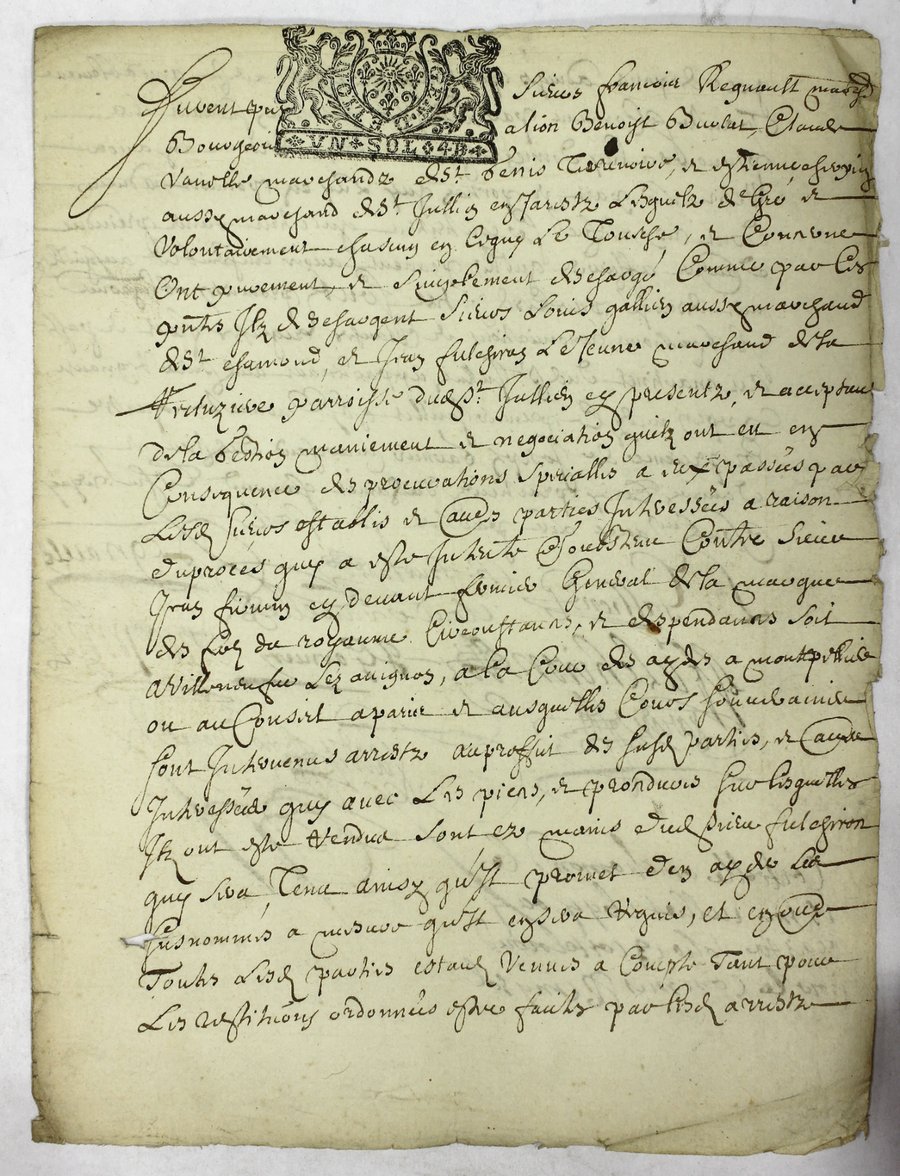 GEN. DE LYON
VN · SOL · 4D
furent pn Sieurs francois Regnault march
Bourgeoi Benoist Claude
marchandz de St. et estienne
aussy marchand de St. Jullien en Jaretz Lesquelz de Gré et
Vollontairement chascun en ce quy Le Tousche, et Concerne
Ont purement, et simplement deschargé Comme par Ces
pntes Ilz deschargent Sieurs Louis gallien aussy marchand
de St. chamond, et Jean fulchiron Le Jeune marchand de la
parroisse dud St. Jullien cy presentz, et acceptans
de la Gestion maniement et negociation quilz ont eu en
Consequence des procurations specialles a eux passées par
Lesd Sieurs establis et aues parties Interessées a raison
du proces quy a esté Intenté Contre Sieur
Jean cy devant fermier General de la marque
des fers du royaume Circonstances, et despendances soit
a Villeneufve Lez avignon, a la Cour des aydes a montpellier
ou au Conseil a paris et ausquelles Cours Souveraines
sont Intervenus arrestz au proffit des susd parties, et aues
Interessées quy avec Les pieces, et proceddures sur lesquelles
Ilz ont esté Rendus sont ez mains dud sieur fulchiron
quy sera Tenu ainsy qu'Il promet d'en ayder Les
susnommés a mesure qu'Il en sera requis, et en
Toutes Lesd parties estans Venues a Compte Tant pour
Les restitutions ordonnées estre faites par lesd arrestz